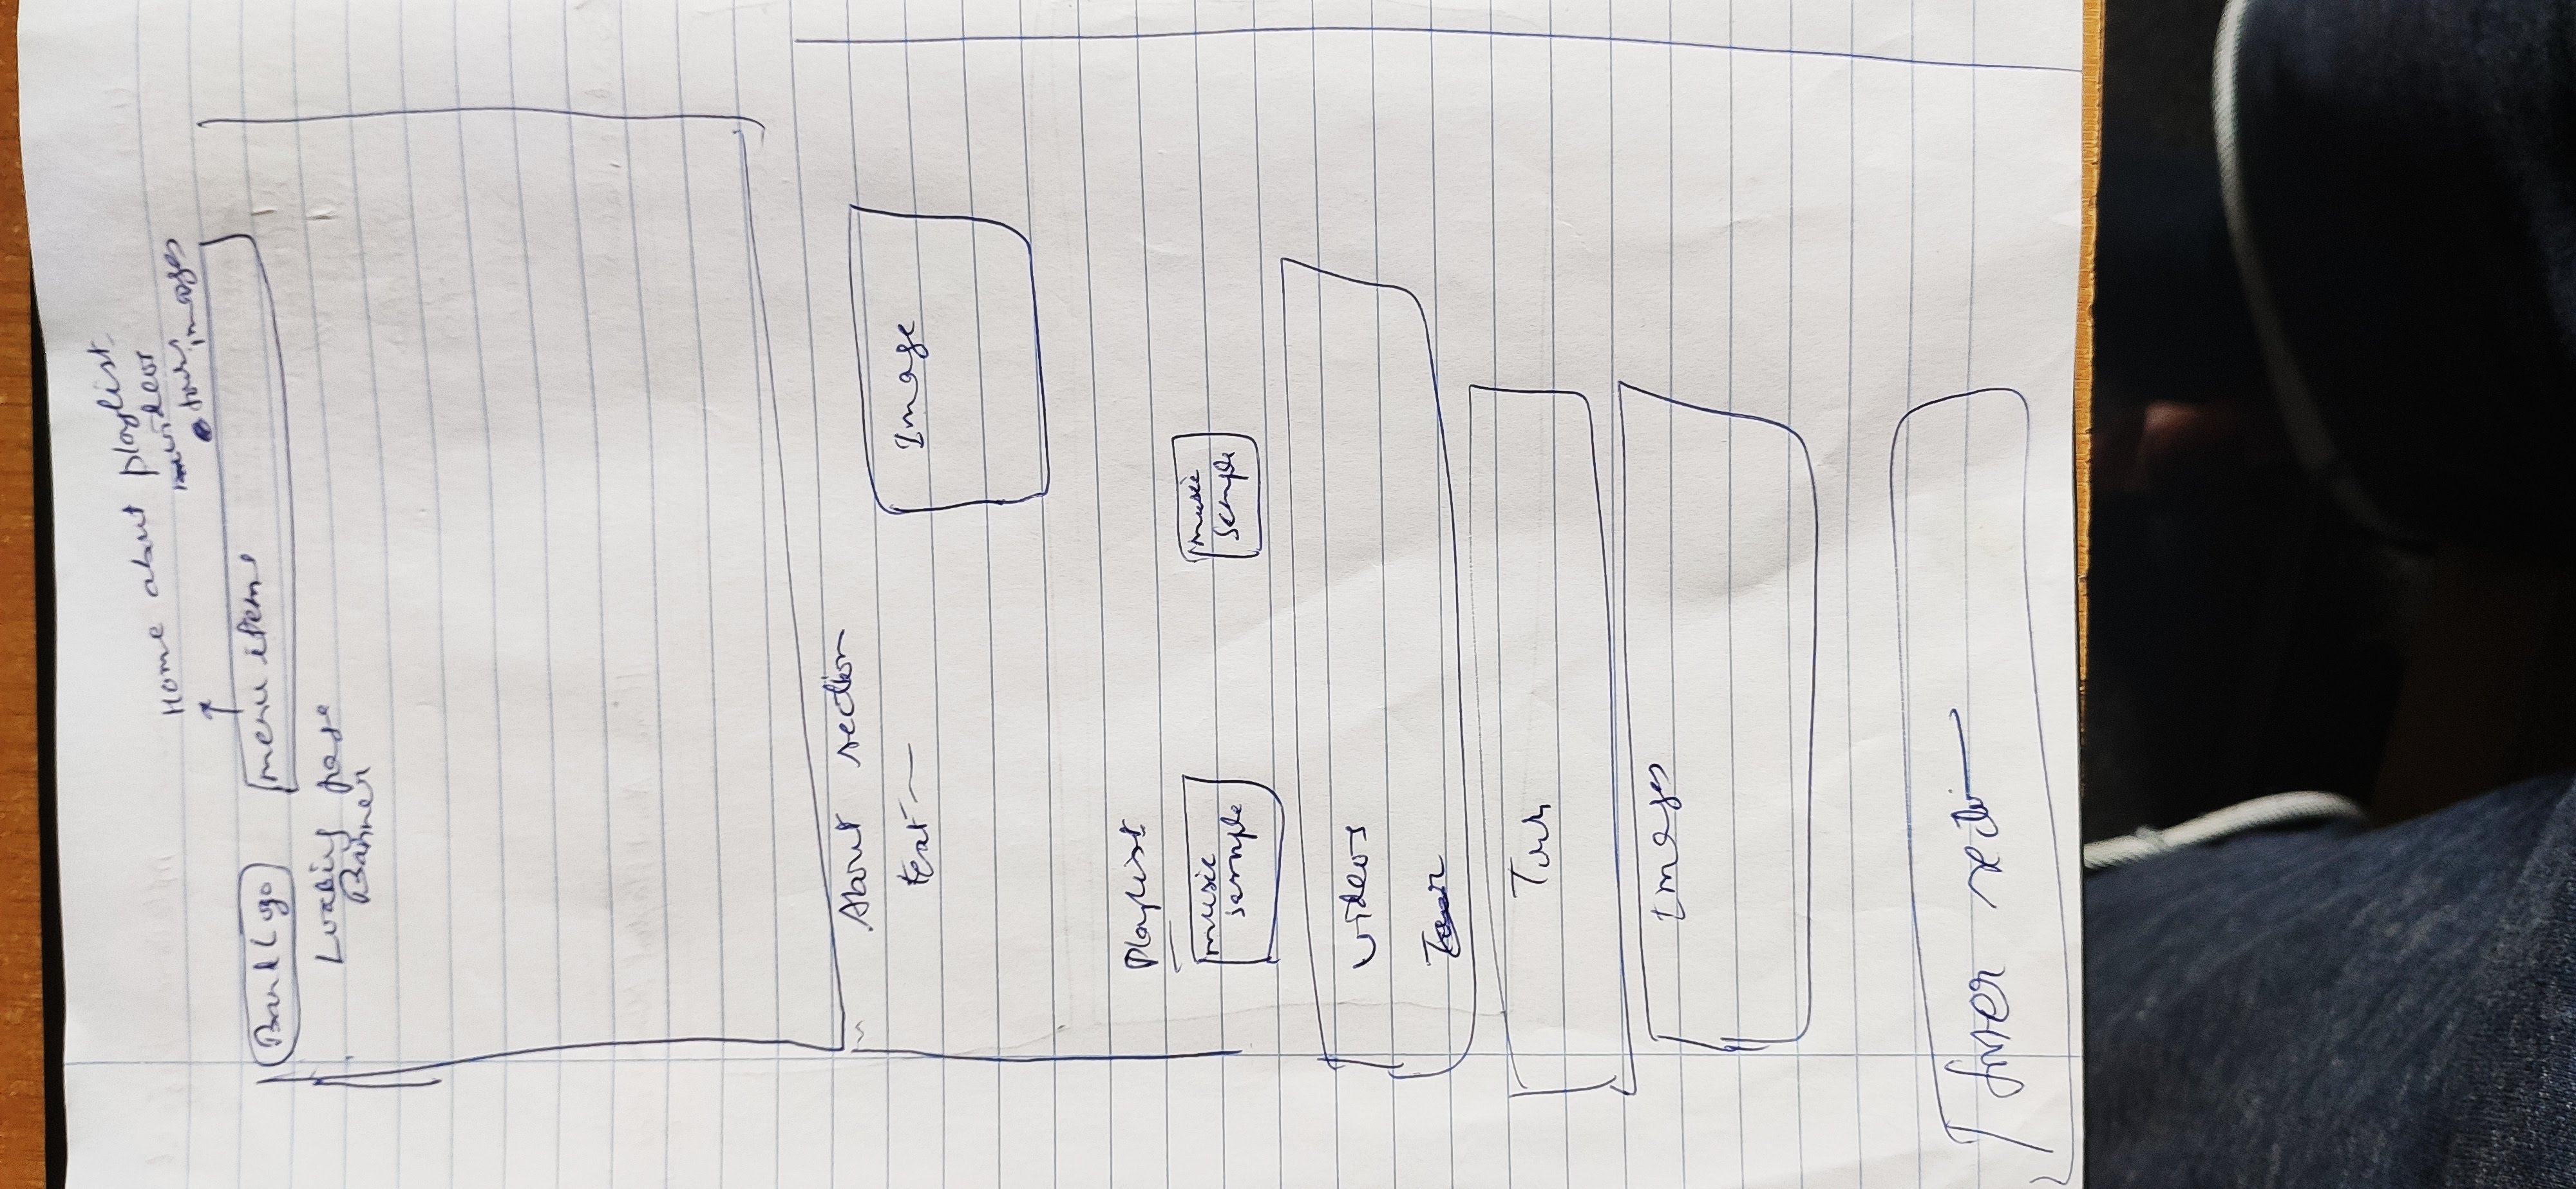 Home about playlist
videos
tours images
Band Logo menu items
Landing page
Banner
About section
text
Image
Playlist
music
sample
music
sample
videos
Tour
Images
section